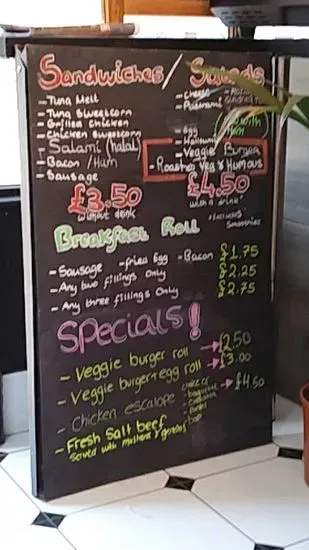 Sandwiches / Salads
- Tuna Melt
- Cheese
- Tuna Sweetcorn
- Pastrami
- Grilled Chicken
- Chicken Sweetcorn
- Egg
- Salami (halal)
- Halloumi
- Bacon / Ham
- Veggie Burger
- Sausage
- Roasted Veg & Humous
£3.50
without drink
£4.50
with a drink
Smoothies
Breakfast Roll
- Sausage - fried Egg - Bacon £1.75
- Any two fillings Only £2.25
- Any three fillings Only £2.75
Specials!
- Veggie burger roll → £2.50
- Veggie burger + egg roll → £3.00
- Chicken escalope → £4.50
choice of
- baguette
- ciabatta
- panini
- bap
- Fresh Salt beef
Served with mustard & gherkins